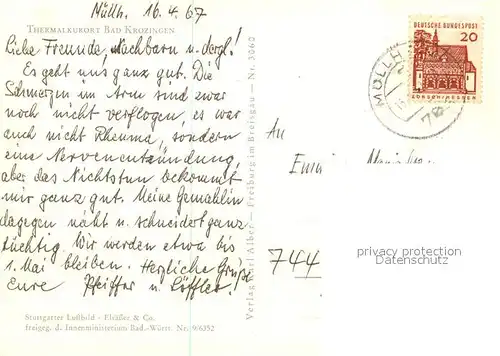 Müllh. 16.4.67
THERMALKURORT BAD KROZINGEN
Liebe Freunde, Nachbarn u. dergl.!
Es geht uns ganz gut. Die
Schmerzen im Arm sind zwar
noch nicht verflogen, es war
auch nicht Rheuma, sondern
eine Nervenentzündung,
aber das Nichtstun bekommt
mir ganz gut. Meine Gemahlin
dagegen näht u. schneidert ganz
tüchtig. Wir werden etwa bis
1. Mai bleiben. Herzliche Grüße
Eure Pfeiffer u. Löffler!
Stuttgarter Luftbild - Elsäßer & Co.
freigeg. d. Innenministerium Bad.-Württ. Nr. 9/6352
Verlag Karl Alber - Freiburg im Breisgau - Nr. 3060
DEUTSCHE BUNDESPOST
20
LORSCH/HESSEN
MÜLLH
An
744
privacy protection
Datenschutz